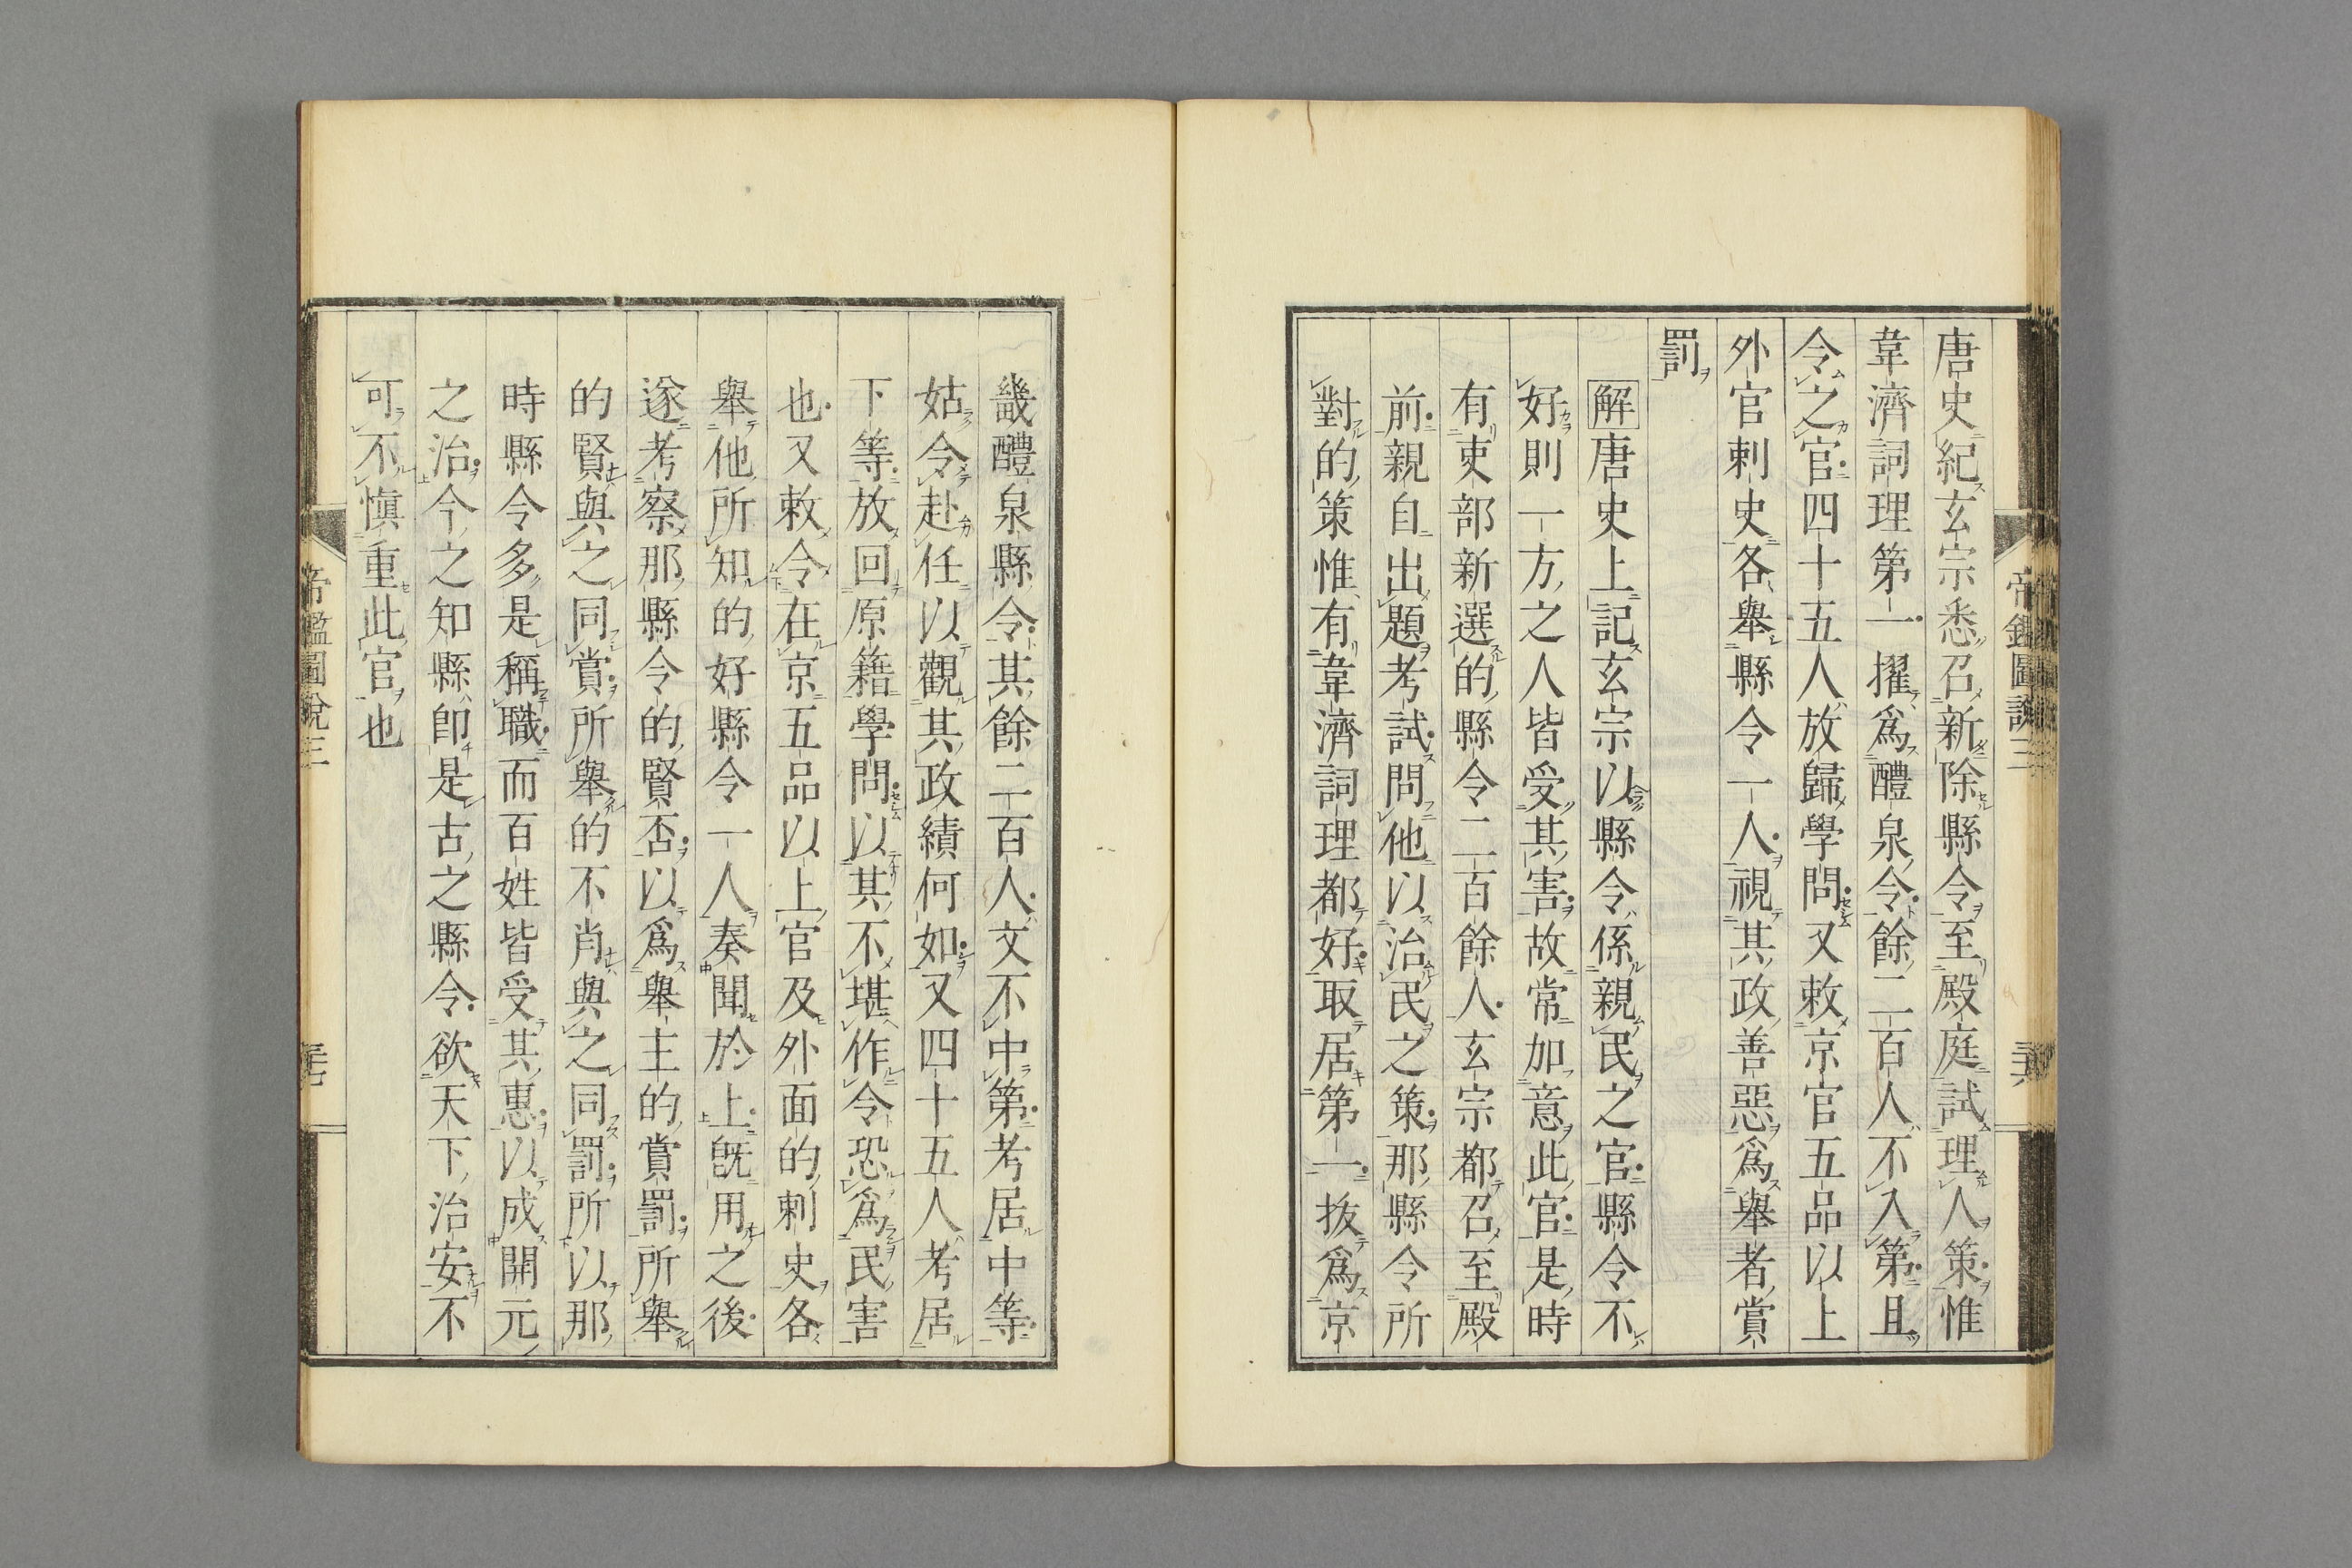 帝鑑圖說三
唐史紀玄宗悉召新除縣令至殿庭試理人策惟
韋濟詞理第一擢爲醴泉令餘二百人不入第且
令之官四十五人放歸學問又敕京官五品以上
外官刺史各舉縣令一人視其政善惡爲舉者賞
罰
解唐史上記玄宗以縣令係親民之官縣令不
好則一方之人皆受其害故常加意此官是時
有吏部新選的縣令二百餘人玄宗都召至殿
前親自出題考試問他以治民之策那縣令所
對的策惟有韋濟詞理都好取居第一拔爲京
畿醴泉縣令其餘二百人文不中第考居中等
姑令赴任以觀其政績何如又四十五人考居
下等放回原籍學問以其不堪作令恐爲民害
也又敕令在京五品以上官及外面的刺史各
舉他所知的好縣令一人奏聞於上旣用之後
遂考察那縣令的賢否以爲舉主的賞罰所舉
的賢與之同賞所舉的不肖與之同罰所以那
時縣令多是稱職而百姓皆受其惠以成開元
之治今之知縣卽是古之縣令欲天下治安不
可不愼重此官也
帝鑑圖說三